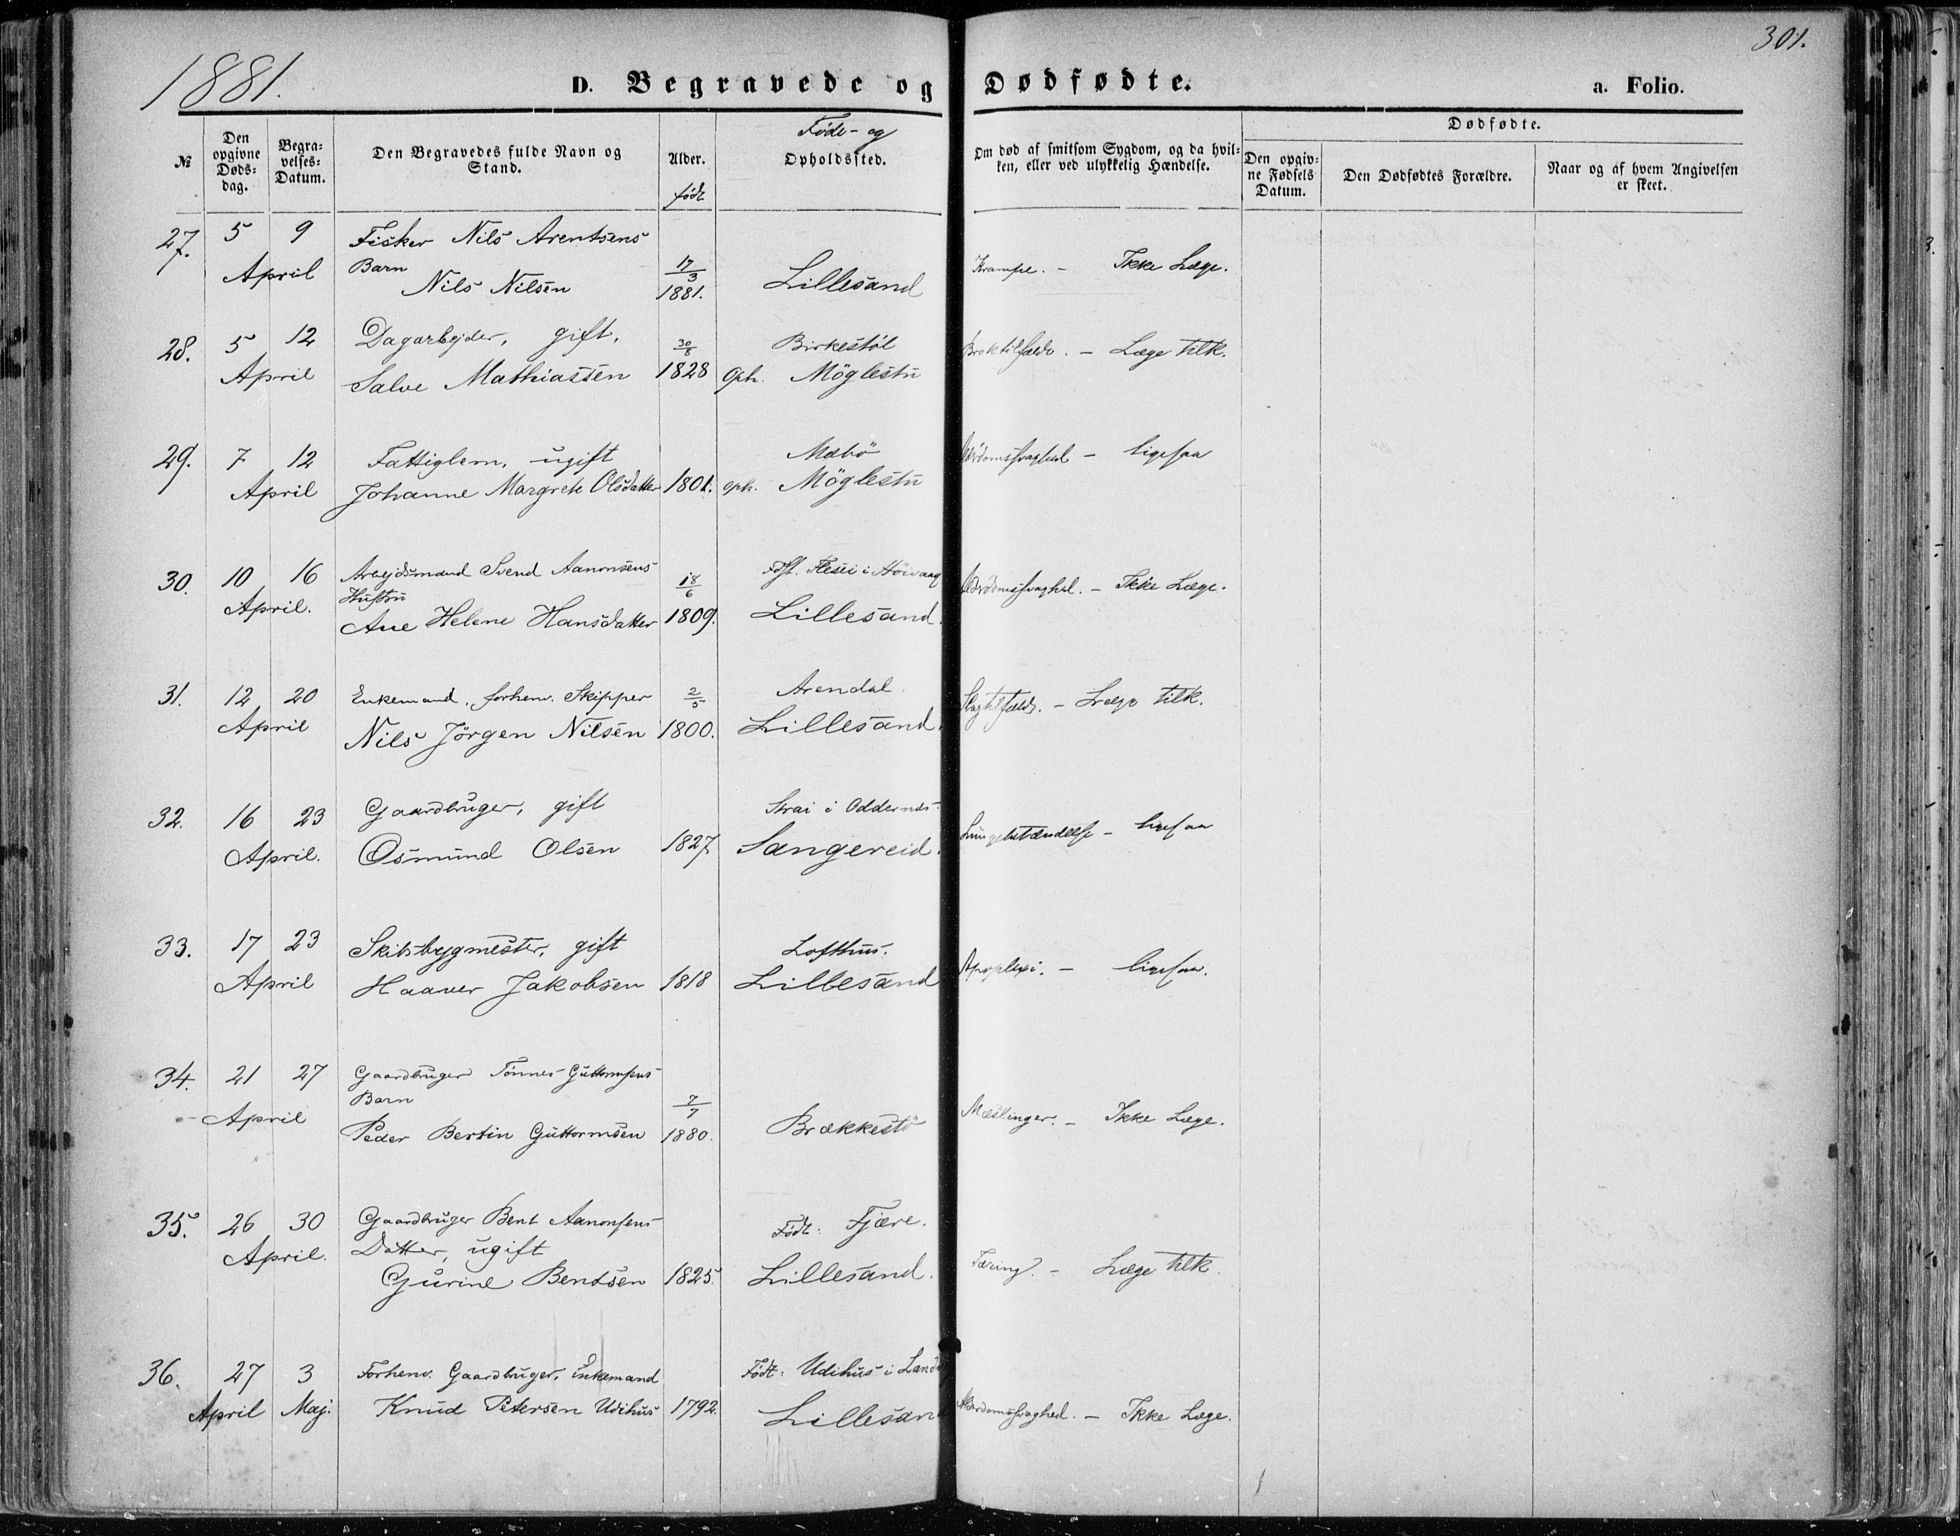 1881.
D. Begravede og Dødfødte.
a. Folio.
301.
№
Den opgivne Døds-dag.
Begra-velses-Datum.
Den Begravedes fulde Navn og Stand.
Alder.
født
Føde- og
Opholdssted.
Om død af smitsom Sygdom, og da hvil-
ken, eller ved ulykkelig Hændelse.
Dødfødte.
Den opgiv-ne Fødsels Datum.
Den Dødfødtes Forældre.
Naar og af hvem Angivelsen er skeet.
27. 5 9 Fisker Nils Arentsens
April Barn 17/3 Krampe. – Ikke Læge.
Nils Nilsen 1881. Lillesand
28. 5 12 Dagarbejder, gift, 30/8 Birkestøl Broktilfælde. – Læge tilk.
April Salve Mathiassen 1828 Oph. Möglestu
29. 7 12 Fattiglem, ugift Mæbö Alderdomssvaghed – ligesaa
April Johanne Margrete Olsdatter 1801. Oph. Möglestu
30. 10 16 Arbejdsmand Svend Aanonsens 18/6 i Höivaag Alderdomssvaghed. – Ikke Læge.
April. Hustru
Ane Helene Hansdatter 1809. Lillesand.
31. 12 20 Enkemand, forhenv. Skipper 2/5 Arendal. Slagtilfælde. – Læge tilk.
April Nils Jörgen Nilsen 1800. Lillesand.
32. 16 23 Gaardbruger, gift Strai i Oddernes Lungebetændelse – ligesaa
April. Osmund Olsen 1827. Sangereid.
33. 17 23 Skibsbygmester, gift Lofthus. Apoplexi. – ligesaa.
April Haaver Jakobsen 1818 Lillesand
34. 21 27 Gaardbruger Tönnes Guttormsens
April Barn 7/7 Mæslinger. – Ikke Læge.
Peder Bertin Guttormsen 1880. Brækkestö
35. 26 30 Gaardbruger Bent Aanonsens Født: Fjære.
April. Datter, ugift
Gurine Bentsen 1825. Lillesand. Tæring. – Læge tilk.
36. 27 3 Forhenv. Gaardbruger, Enkemand Født: Udihus i Landv
April Maj. Knud Petersen Udihus 1792. Lillesand Alderdomssvaghed. – Ikke Læge.